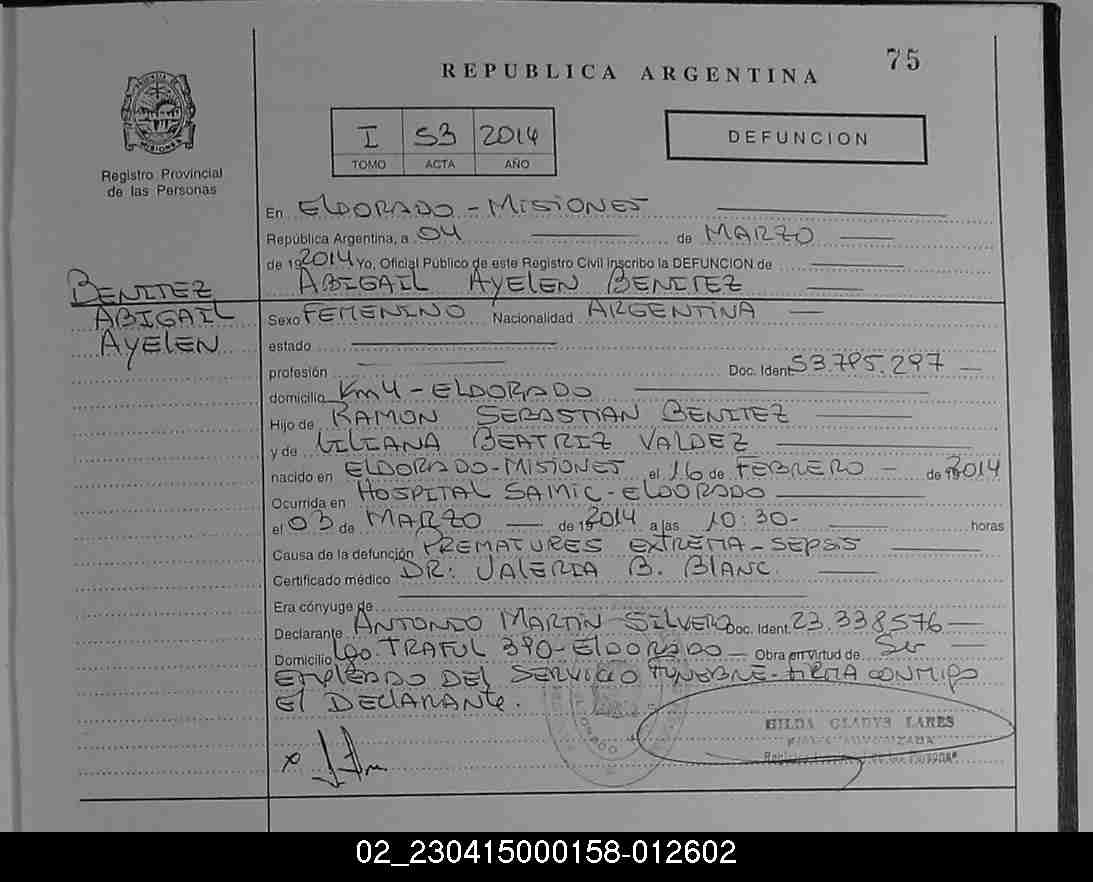 75
REPUBLICA ARGENTINA
I S3 2014
TOMO ACTA AÑO
DEFUNCION
Registro Provincial
de las Personas
En ELDORADO - MISIONES
República Argentina, a 04 de MARZO
de 19 2014 Yo, Oficial Público de este Registro Civil inscribo la DEFUNCION de
ABIGAIL AYELEN BENITEZ
BENITEZ
ABIGAIL
AYELEN
Sexo FEMENINO Nacionalidad ARGENTINA
estado
profesión Doc. Ident. 53.795.297
domicilio Km4 - ELDORADO
Hijo de RAMON SEBASTIAN BENITEZ
y de LILIANA BEATRIZ VALDEZ
nacido en ELDORADO-MISIONES el 16 de FEBRERO de 19 2014
Ocurrida en HOSPITAL SAMIC - ELDORADO
el 03 de MARZO de 19 2014 a las 10:30- horas
Causa de la defunción PREMATURES EXTREMA - SEPSIS
Certificado médico DR: VALERIA B. BLANC.
Era cónyuge de
Declarante ANTONIO MARTIN SILVERO Doc. Ident. 23.338576
Domicilio Lgo TRAFUL 390 - ELDORADO Obra en virtud de Ser
EMPLEADO DEL SERVICIO FUNEBRE - FIRMA CONMIGO
El DECLARANTE.
HILDA GLADYS LARES
FIRMA AUTORIZADA
02_230415000158-012602